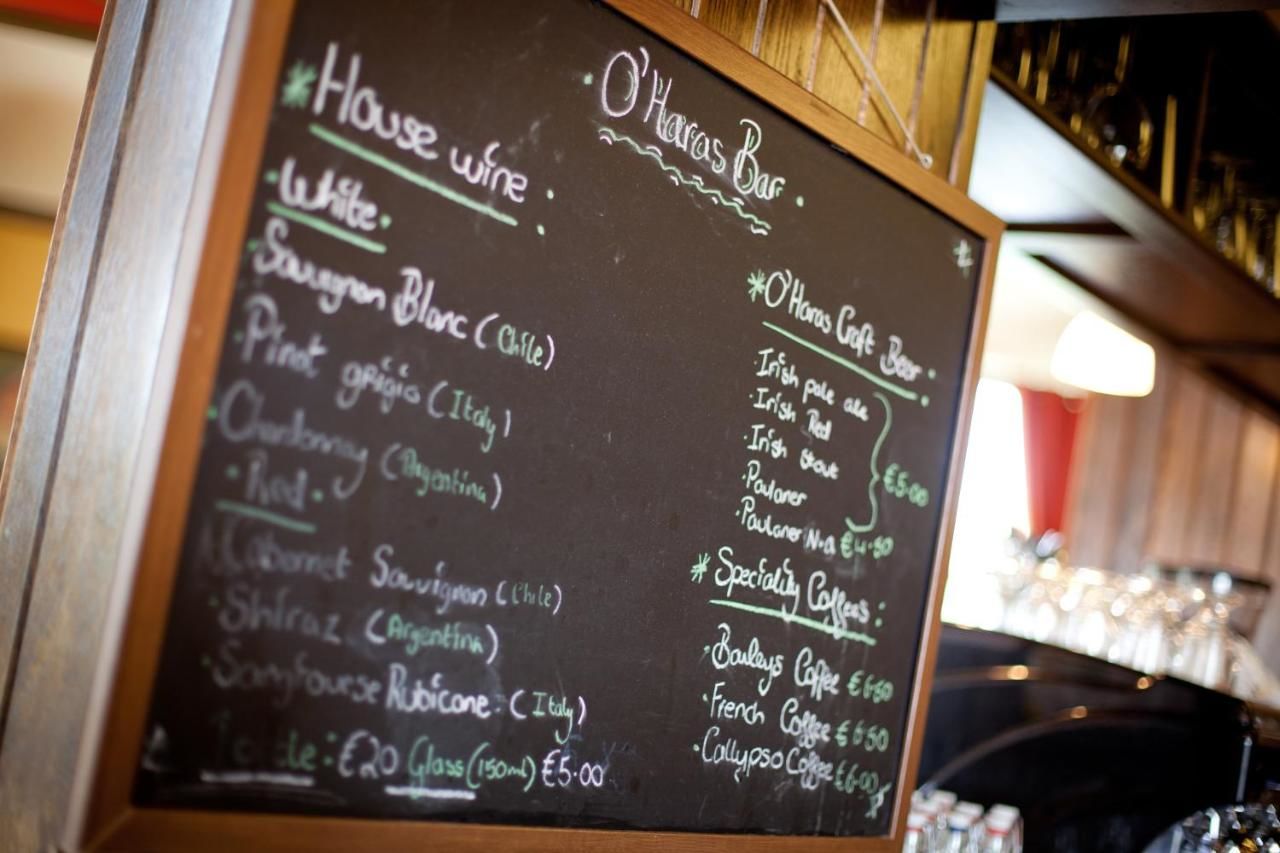 O'Haras Bar
House wine
White
Sauvignon Blanc (Chile)
Pinot grigio (Italy)
Chardonnay (Argentina)
Red
Cabernet Sauvignon (Chile)
Shiraz (Argentina)
Rubicone: (Italy)
€20 Glass (150ml) €5.00
O'Haras Craft Beer
Irish pale ale
Irish Red
Irish stout
€5.00
Paulaner
Paulaner N.a €4.50
Speciality Coffees:
Baileys Coffee €6.50
French Coffee €6.50
Callypso Coffee €6.00